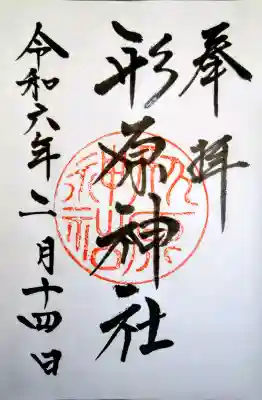 奉拝
形原神社
令和六年二月十四日